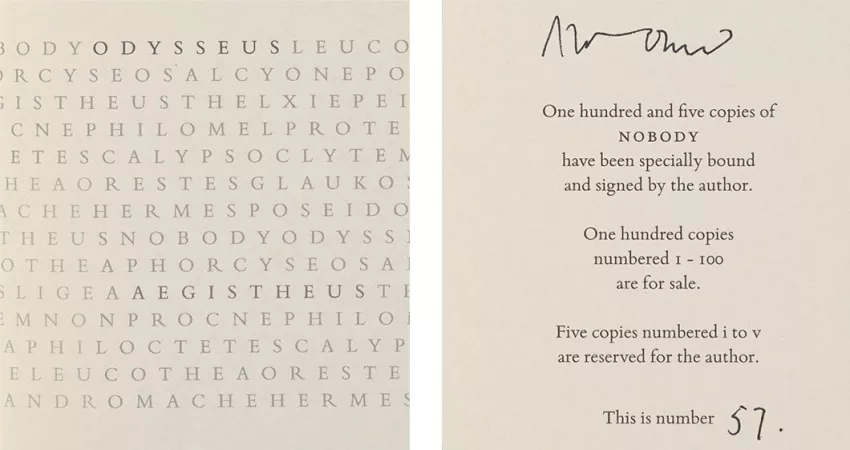 BODYODYSSEUSLEUCO
ORCYSEOSALCYONEPO
GISTHEUSTHELXIEPEI
CNEPHILOMELPROTE
ETETESCALYPSOCLYTEM
HEAORESTESGLAUKOS
ACHEHERMESPOSEIDO
THEUSNOBODYODYSS
OTHEAPHORCYSEOSA
SLIGEAAEGISTHEUST
EMNONPROCNEPHILO
APHILOCTETESCALYP
ELEUCOTHEAORESTE
ANDROMACHEHERMES
One hundred and five copies of
NOBODY
have been specially bound
and signed by the author.
One hundred copies
numbered 1 - 100
are for sale.
Five copies numbered i to v
are reserved for the author.
This is number 57.